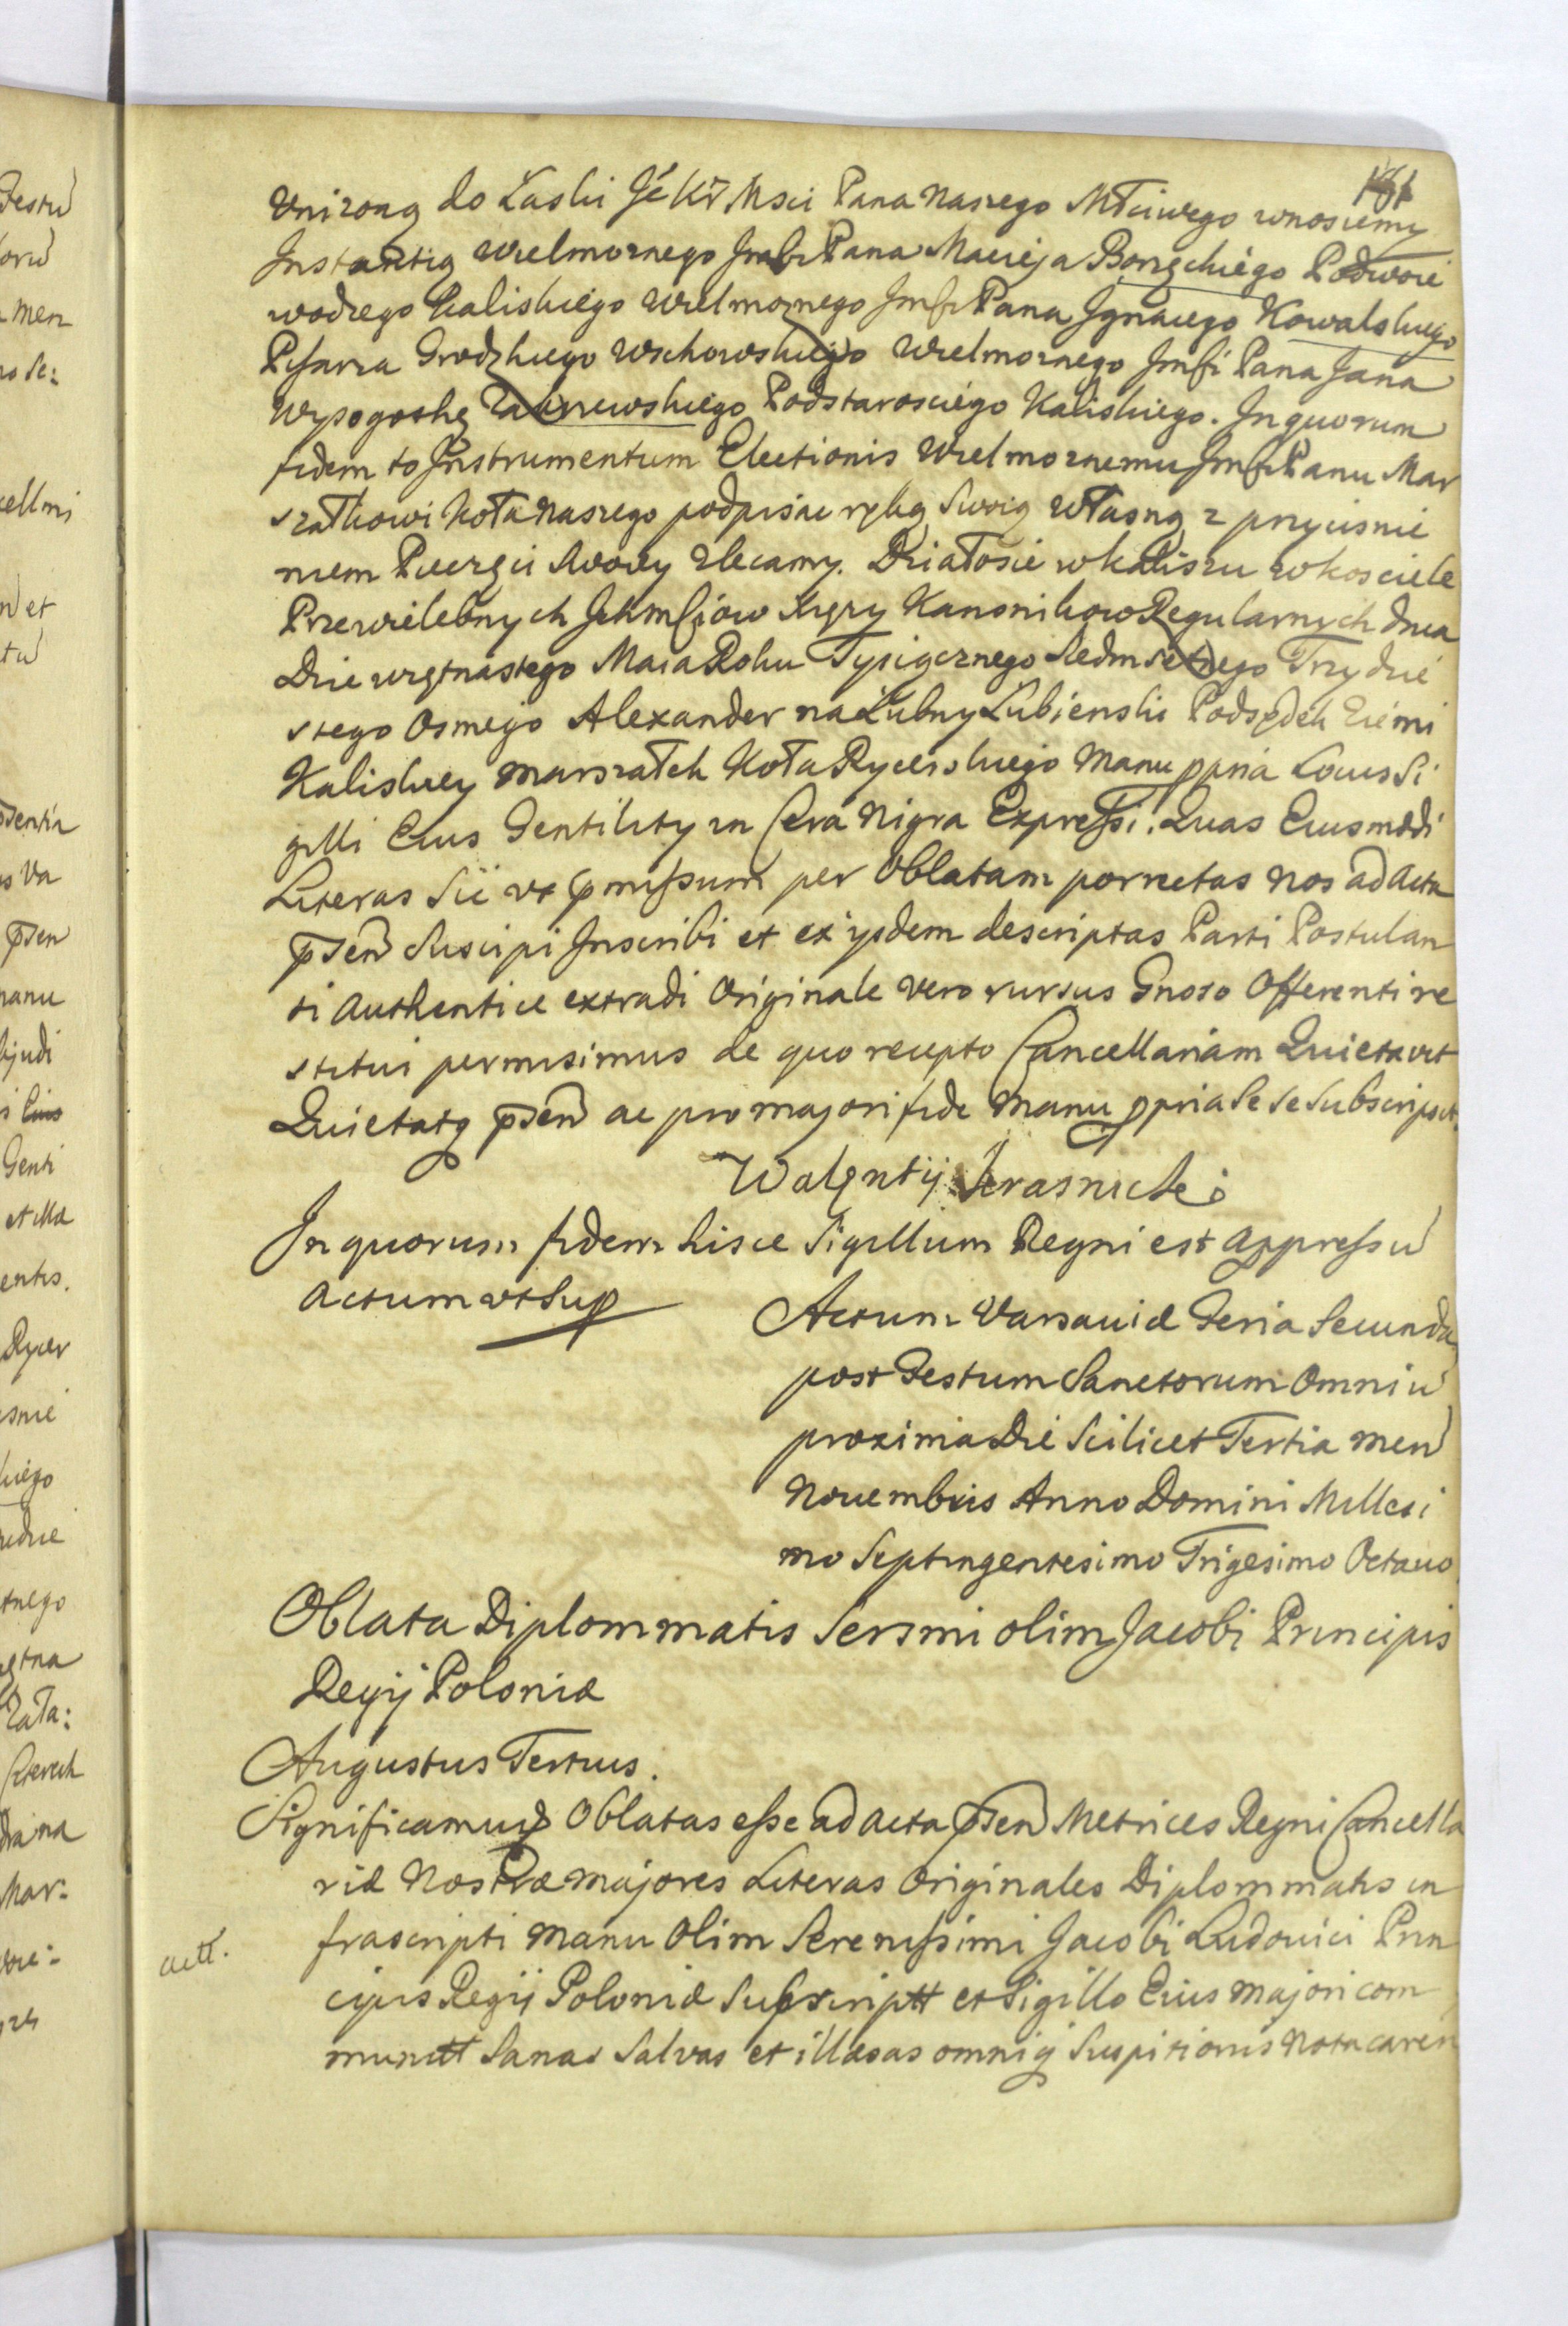 Vnizoną do Łaski Jé Kr̃ Msci Pana Naszego Młciwego wnosiemy
Instantią Wielmoznego Jmſci Pana Macieja Bonyckiégo Podwoie
wodzego Kaliskiégo Wielmoznego Jmſci Pana Jgnacego Kowalskiego
Pisarza Grodzkiego Wschowskiego Wielmoznego Jmſci Pana Jana
Wysogothę Podstarosciégo Kaliskiego. Jn quorum
fidem to Jnstrumentum Electionis Wielmoznemu Jmſci Panu Mar
szałkowi Koła Naszego podpisac ręką Swoią Własną z przycisnie
niem Pieczęci Swoiey zlecamy. Działosie w Kaliszu w Kosciele
Przewielebnych Jchmſciow Xięzy Kanonikow Regularnych dnia
Dziewiętnastego Maia Roku Tysiącznego Siedmsetnego Trzydzie
stego Osmego Alexander na Łubny Łubienski Podsędek Ziémi
Kaliskiey Marszałek Koła Rycerskiego Manu ppria Locus Si
gilli Eius Gentility in Cera Nigra Expreſsi. Quas Eiusmodi
Literas Sic vt pmiſsum per Oblatam porrectas Nos ad Acta
pñsen Suscipi Jnscribi et ex ijsdem descriptas Parti Postulan
ti Authentice extradi Originale vero rursus Gnoso Offerenti re
stitui permisimus de quo recepto Cancellariam Quietavit
Quietatq pñsen ac pro majori fide Manu ppria Se se Subscripsit.
Walęntÿ Krasnicki
Jn quorum fidem hisce Sigillum Regni est appreſsu
Actum vt Sup
Actum Varsauiæ Feria Secunda
post Festum Sanctorum Omniu
proxima Die Scilicet Tertia men
Nouembris Anno Domini Millesi
mo Septingentesimo Trigesimo Octauo
Oblata Diplommatis Sersmi olim Jacobi Principis
Regij Poloniæ
Augustus Tertius.
Significamus Oblatas eſse ad Acta pñsen Metrices Regni Cancella
riæ Nostræ Majores Literas Originales Diplommatis in
frascripti Manu Olim Sereniſsimi Jacobi Ludouici Prin
cipis Regij Poloniæ Subscriptt et Sigillo Eius Majori com
munitt Sanas Salvas et illæsas omniq Suspitionis Nota caren